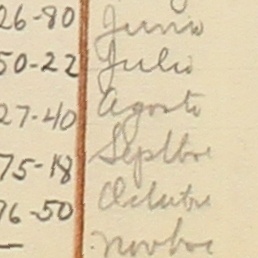 26-80 Junio
50-22 Julio
27-40 Agosto
75-18 Septbre
76-50 Octubre
Novbre